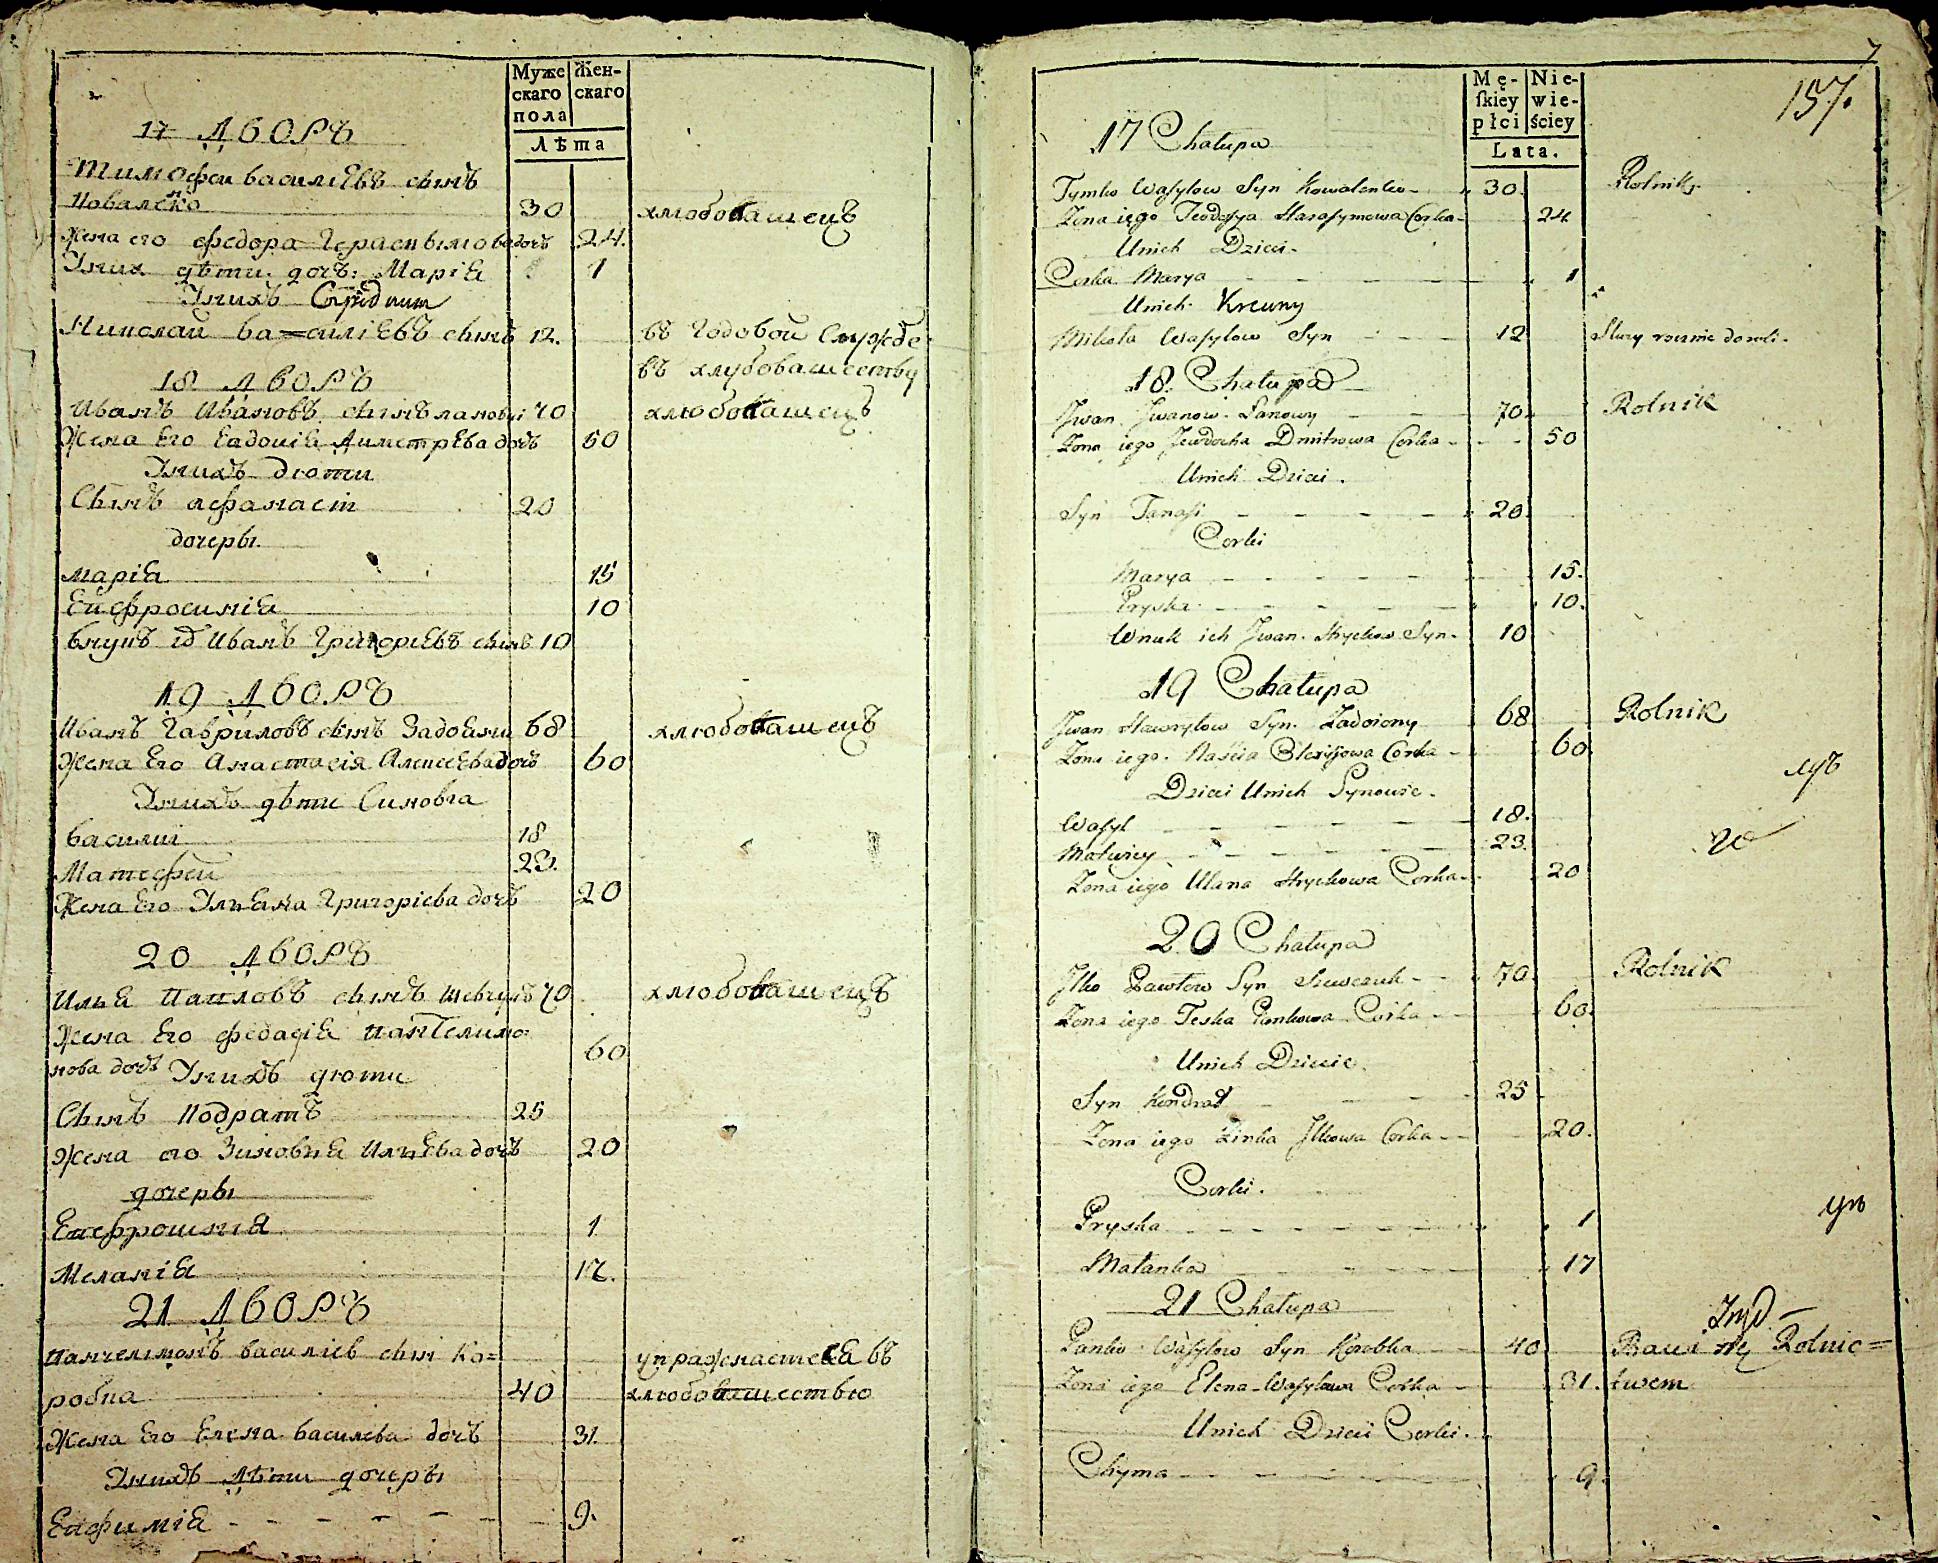 Муже
скаго
пола
Жен-
скаго
Лѣта
17 Дворъ
Тимофеи василiевъ сынъ
Ковалѣко 30 хлюбопашецъ
Жена его федора Герасымова дочь 24.
Унихъ дѣти: дочъ: Марiя 1
Унихъ
Николай ва=силiевъ сынъ 12. въ годовой службе
въ хлубопашеству
18 Дворъ
Иванъ Ивановъ сынъ лановый 70 хлюбопашецъ
Жена Его Евдокiя Димитрева дочь 50
Унихъ дюти
Сынъ афанасiй 20
дочеры
марiя 15
Ейефросинiя 10
внукъ Иванъ Григорiевъ сынъ 10
19 Дворъ
Иванъ Гавриловъ сынъ Задояны 68 хлюбопашецъ
Жена Его Анастасiя Алексеева дочь 60
Унихъ дѣти Синовiа
василий 18
Матефей 23.
Жена Его Ульяна Григорiева дочъ 20
20 Дворъ
Илья Павловъ сынъ Шевчукъ 70 хлюбопашецъ
Жена Его федасiя пантелимо=
нова дочь 60
Унихъ дюти
Сынъ Кодратъ 25
Жена его Зиновья Ильева дочъ 20
дочеры
Епефрошиния 1
Меланiя 17.
21 Дворъ
Панчелимонъ василiев сын Ко= упражнается въ
робка 40 хлюбопашествью
Жена Его Елена василева дочъ 31.
Унихъ Дѣти дочеры
Епфимiя 9.
7
157.
Mę-
skiey
płci
Nie-
wie-
ściey
Lata.
17 Chałupa
Tymko Wasylow Syn Kowalenko 30. Rolnik
Zona iego Teodosya Harasymowa Corka 24
Unich Dzieci
Corka Marya 1
Unich Krewny
Mikoła Wasylow Syn 12 Słuzy rocznie do roli.
18. Chałupa
Jwan Jwanow Łanowy 70 Rolnik
Zona iego Jewdocha Dmitrowa Corka 50
Unich Dzieci.
Syn Tanasi 20.
Corki
Marya 15.
Pryska 10.
Wnuk ich Jwan Hryckow Syn 10
19 Chałupa
Jwan Hawryłow Syn Zadoiony 68 Rolnik
Zona iego Naścia Olexijowa Corka 60
Dzieci Unich Synowie.
Wasyl 18.
Matwiey 23.
Zona iego Ulana Hryckowa Corka 20
20 Chałupa
Jlko Pawłow Syn Szewczuk 70. Rolnik
Zona iego Teska Pankowa Corka 60.
Unich Dziecie.
Syn Kondrat 25
Zona iego Zinka Jlkowa Corka 20.
Corki.
Pryska 1
Małanka 17
21 Chałupa
Panko Wasylow Syn Korobka 40 Bawi się Rolnic=
Zona iego Elena Wasylowa Corka 31. twem
Unich Dzieci Corki.
Chyma 9.